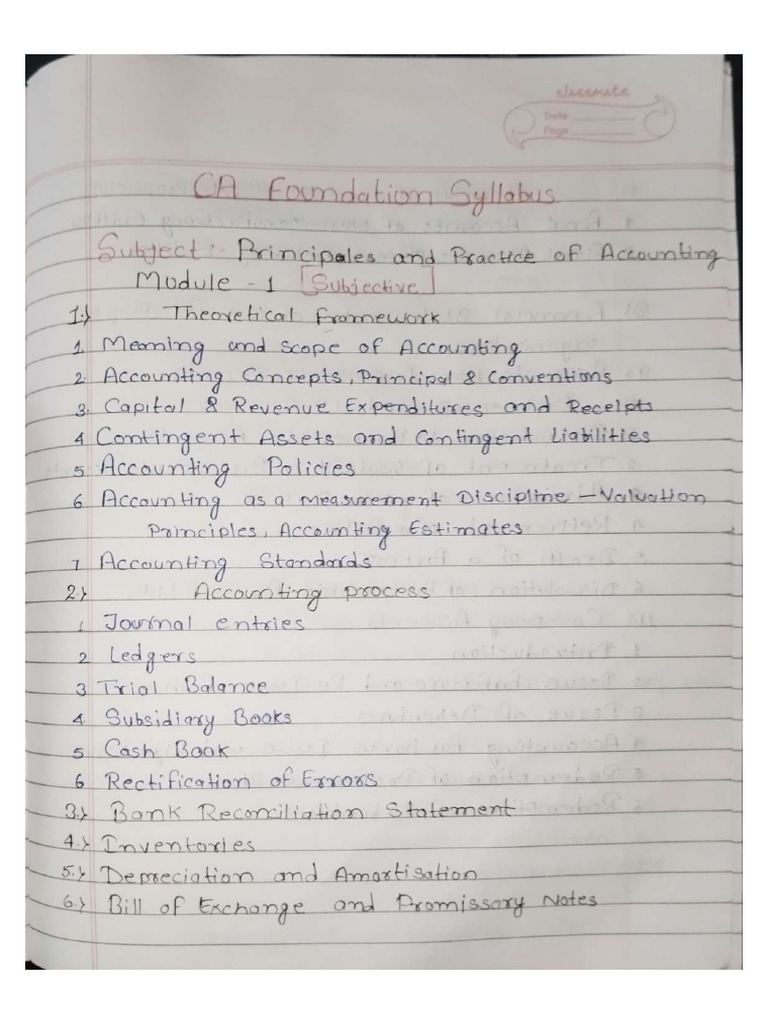 classmate
Date
Page
CA Foundation Syllabus
Subject :- Principales and Practice of Accounting
Module - 1 [Subjective]
1.) Theoretical Framework
1. Meaning and scope of Accounting
2. Accounting Concepts, Principal & Conventions
3. Capital & Revenue Expenditures and Receipts
4 Contingent Assets and Contingent Liabilities
5 Accounting Policies
6 Accounting as a Measurement Discipline – Valuation
Principles, Accounting Estimates
7 Accounting Standards
2.) Accounting process
1 Journal entries
2 Ledgers
3 Trial Balance
4. Subsidiary Books
5 Cash Book
6 Rectification of Errors
3.) Bank Reconciliation Statement
4.) Inventories
5.) Depreciation and Amortisation
6.) Bill of Exchange and Promissory Notes